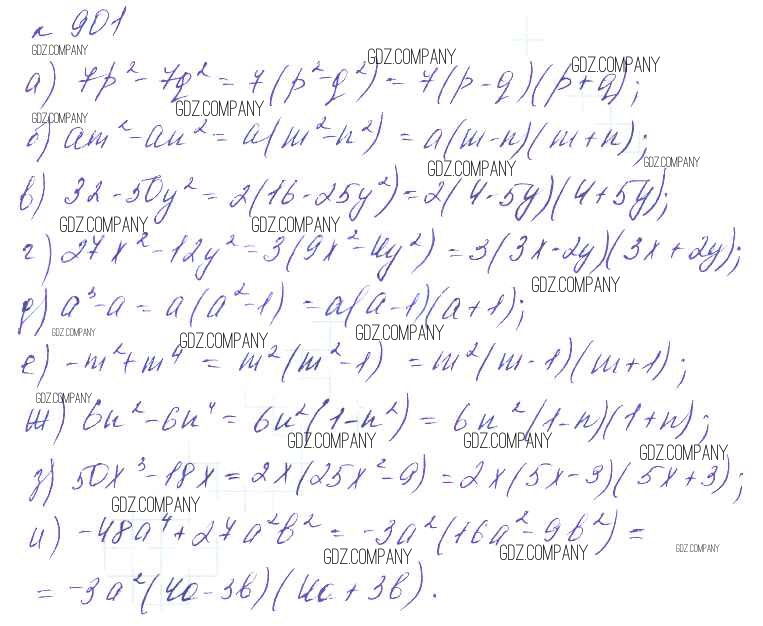 № 901
GDZ.COMPANY GDZ.COMPANY GDZ.COMPANY
а) 7p² - 7q² = 7(p² - q²) = 7(p - q)(p + q);
GDZ.COMPANY GDZ.COMPANY
б) am² - an² = a(m² - n²) = a(m - n)(m + n);
GDZ.COMPANY GDZ.COMPANY
в) 32 - 50y² = 2(16 - 25y²) = 2(4 - 5y)(4 + 5y);
GDZ.COMPANY GDZ.COMPANY
г) 27x² - 12y² = 3(9x² - 4y²) = 3(3x - 2y)(3x + 2y);
GDZ.COMPANY
д) a³ - a = a(a² - 1) = a(a - 1)(a + 1);
GDZ.COMPANY GDZ.COMPANY GDZ.COMPANY
е) -m² + m⁴ = m²(m² - 1) = m²(m - 1)(m + 1);
GDZ.COMPANY
ж) 6n² - 6n⁴ = 6n²(1 - n²) = 6n²(1 - n)(1 + n);
GDZ.COMPANY GDZ.COMPANY GDZ.COMPANY
з) 50x³ - 18x = 2x(25x² - 9) = 2x(5x - 3)(5x + 3);
GDZ.COMPANY
и) -48a⁴ + 27a²b² = -3a²(16a² - 9b²) =
GDZ.COMPANY GDZ.COMPANY GDZ.COMPANY
= -3a²(4a - 3b)(4a + 3b).